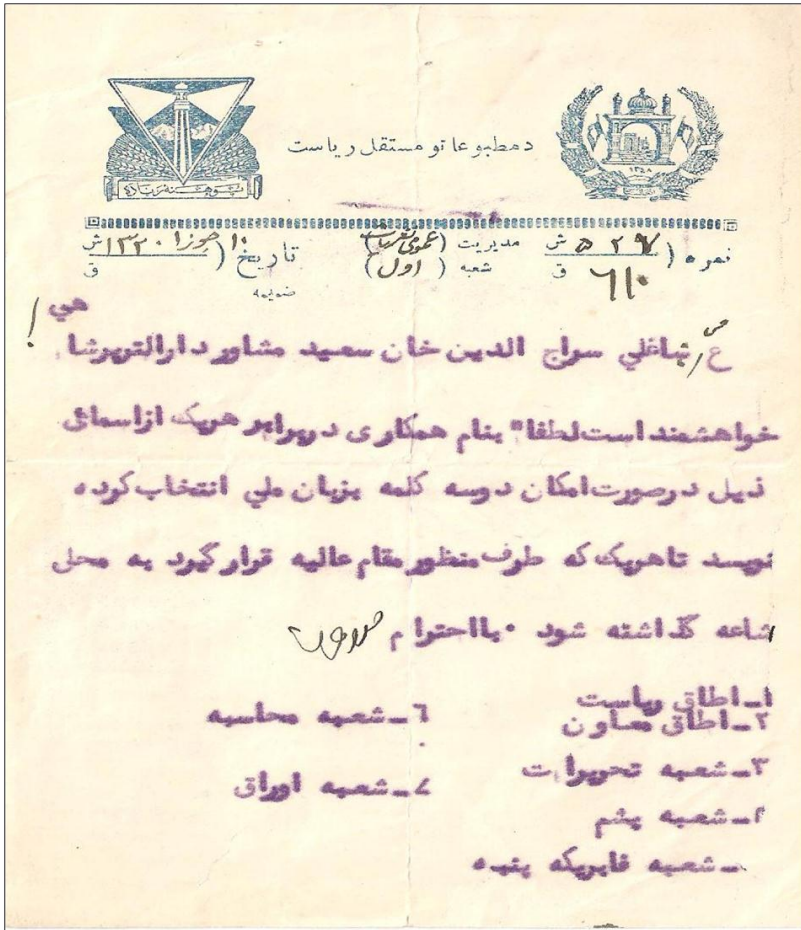 دمطبوعاتو مستقل ریاست
پوهنه ریاده
۱۳۴۸
نمره ( ۵۲۷ ش ۶۱۰ ق
مدیریت (عمومی) شعبه ( اول )
تاریخ ( ۱۰ جوزا ۱۳۲۰ ش ق
ضویمه
ع، ښاغلي سراج الدین خان سعید مشاور دارالتهرشاهي !
خواهشمند است لطفا" بنام همکاری دربرابر هریک ازاسمائی
ذیل درصورت امکان دوسه کلمه بزبان ملي انتخاب کرده
نویسد تاهریک که طرف منظور مقام عالیه قرار گیرد به محلی
شاعه گذاشته شود ۰ بااحترام
۱ـ اطاق ریاست
۲ـ اطاق معاون
۳ـ شعبه تحریرات
۴ـ شعبه پشم
ـ شعبه فابریکه پنبه
۶ـ شعبه محاسبه
۷ـ شعبه اوراق